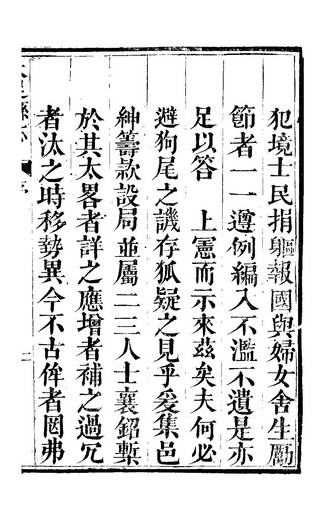 犯境士民捐軀報國與婦女舍生勵
節者一一遵例編入不濫不遺是亦
足以答　上憲而示來茲矣夫何必
避狗尾之譏存狐疑之見乎爰集邑
紳籌款設局並屬二三人士襄鉛槧
於其太畧者詳之應增者補之過冗
者汰之時移勢異今不古侔者罔弗